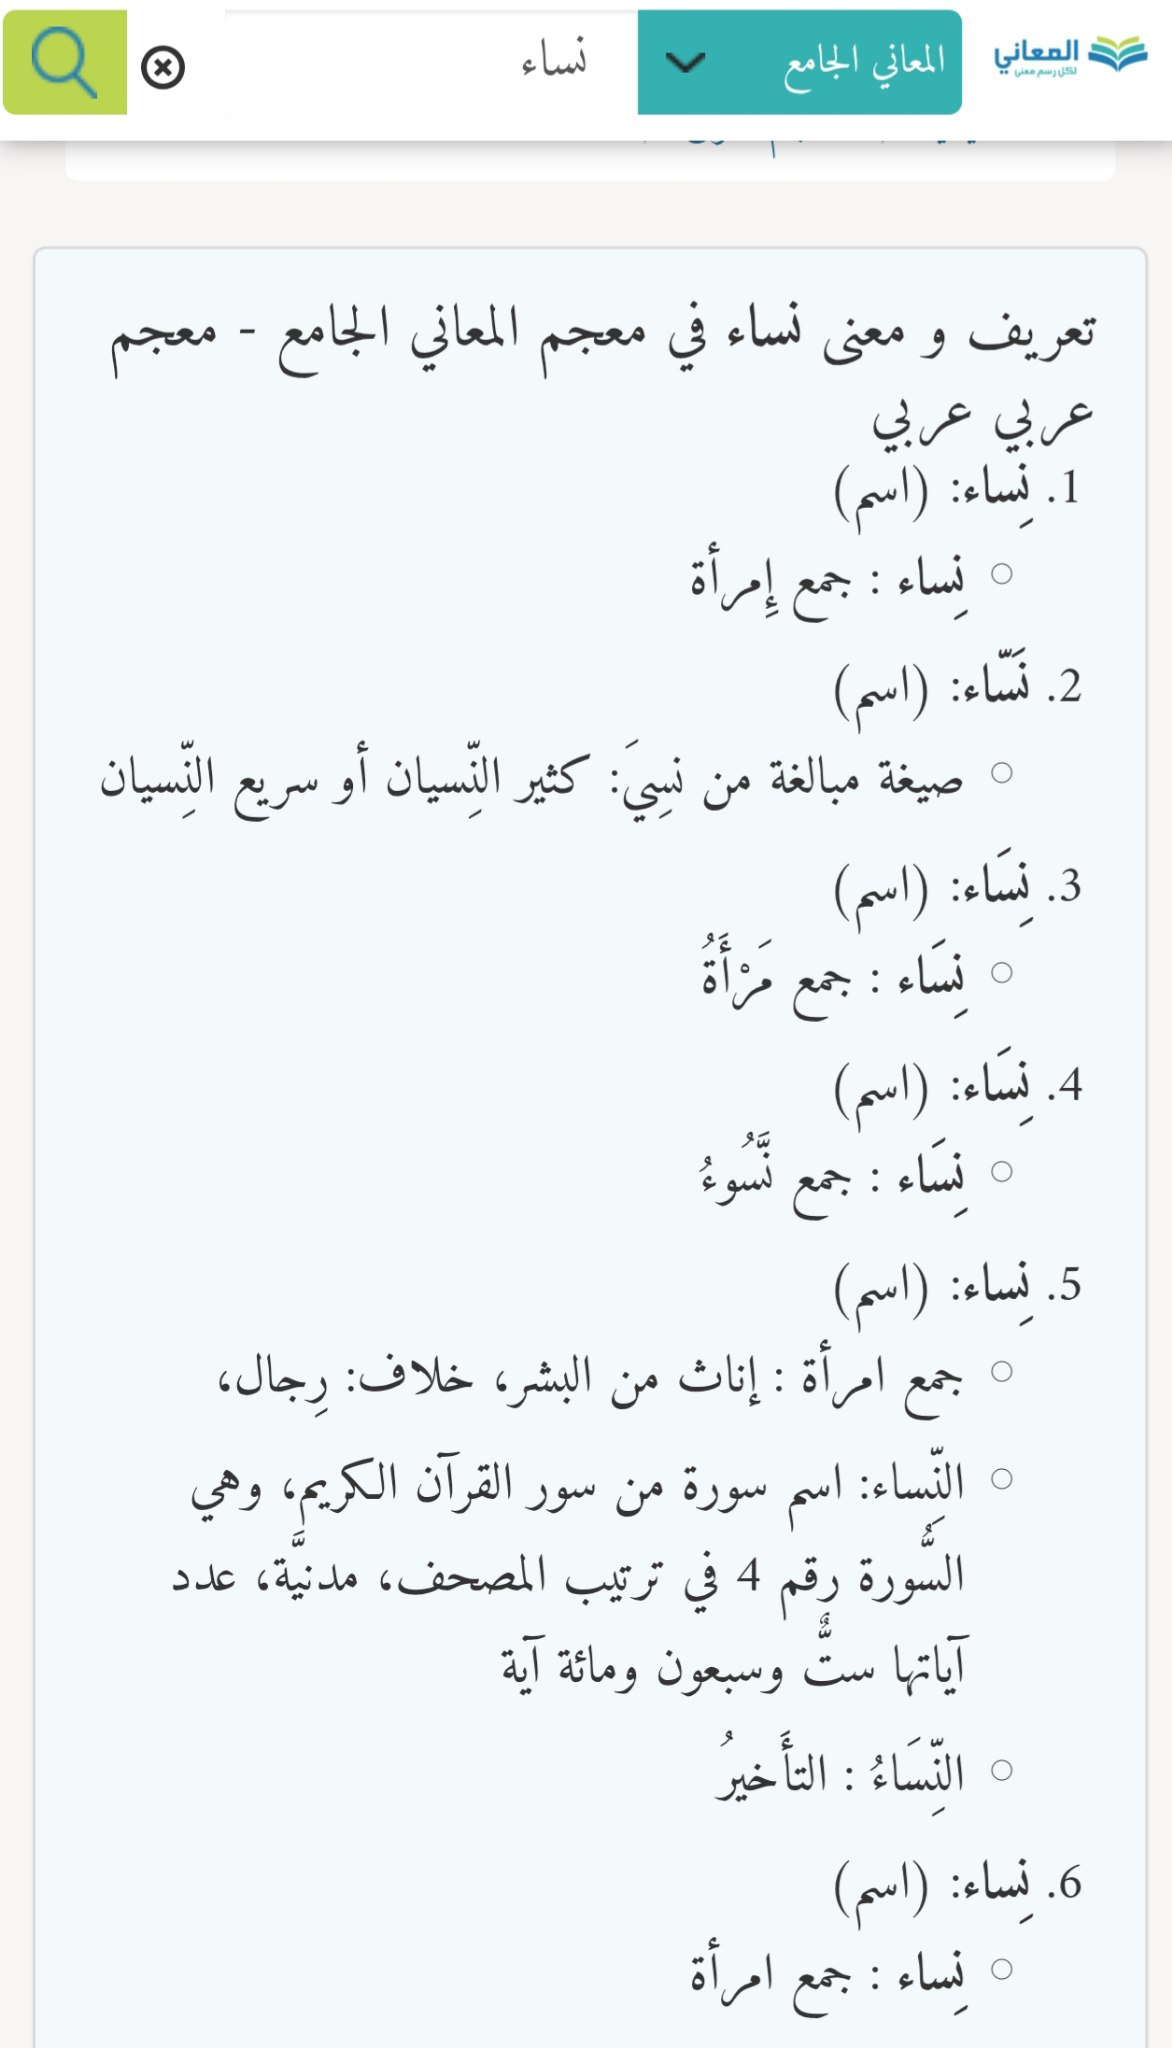 المعاني
لكل رسم معنى
المعاني الجامع
نساء
تعريف و معنى نساء في معجم المعاني الجامع - معجم
عربي عربي
1. نِساء: (اسم)
نِساء : جمع إِمرأة
2. نَسّاء: (اسم)
صيغة مبالغة من نسِيَ: كثير النِّسيان أو سريع النِّسيان
3. نِسَاء: (اسم)
نِسَاء : جمع مَرْأَةُ
4. نِسَاء: (اسم)
نِسَاء : جمع نَّسُوءُ
5. نِساء: (اسم)
جمع امرأة : إناث من البشر، خلاف: رِجال،
النِّساء: اسم سورة من سور القرآن الكريم، وهي
السُّورة رقم 4 في ترتيب المصحف، مدنيَّة، عدد
آياتها ستٌّ وسبعون ومائة آية
النِّسَاءُ : التأَخيرُ
6. نِساء: (اسم)
نِساء : جمع امرأة